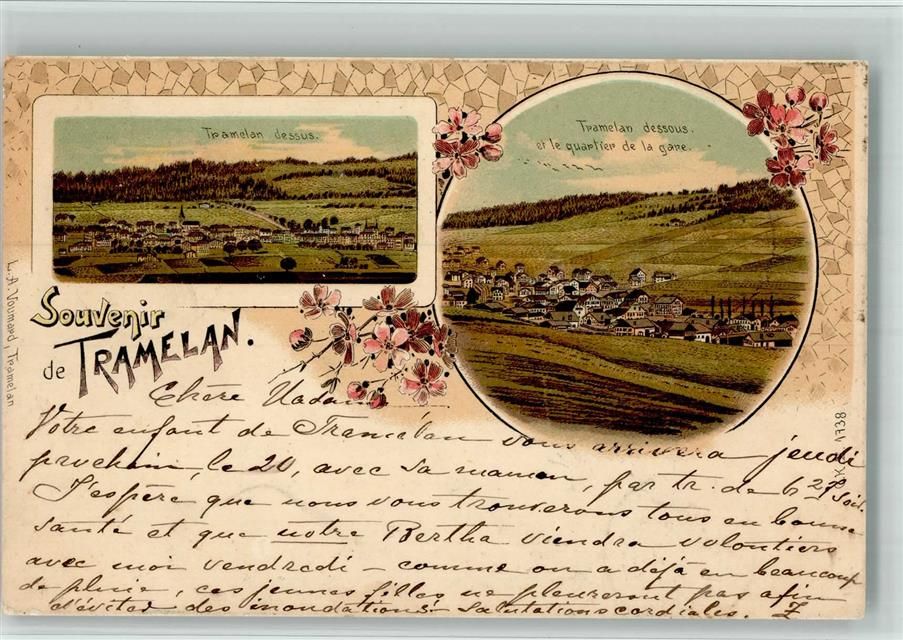 Tramelan dessus.
Tramelan dessous.
et le quartier de la gare.
L. A. Voumard Tramelan
Souvenir
de TRAMELAN.
1738
Chère Madame
Votre enfant de Tramelan vous arrivera jeudi
prochain, le 20, avec sa maman, par tr. de 6 27 soir.
J'espère que nous vous trouverons tous en bonne
santé et que notre Bertha viendra volontiers
avec moi vendredi - comme on a déjà eu beaucoup
de pluie, ces jeunes filles ne pleureront pas afin
d'éviter des inondations - Salutations cordiales. Z